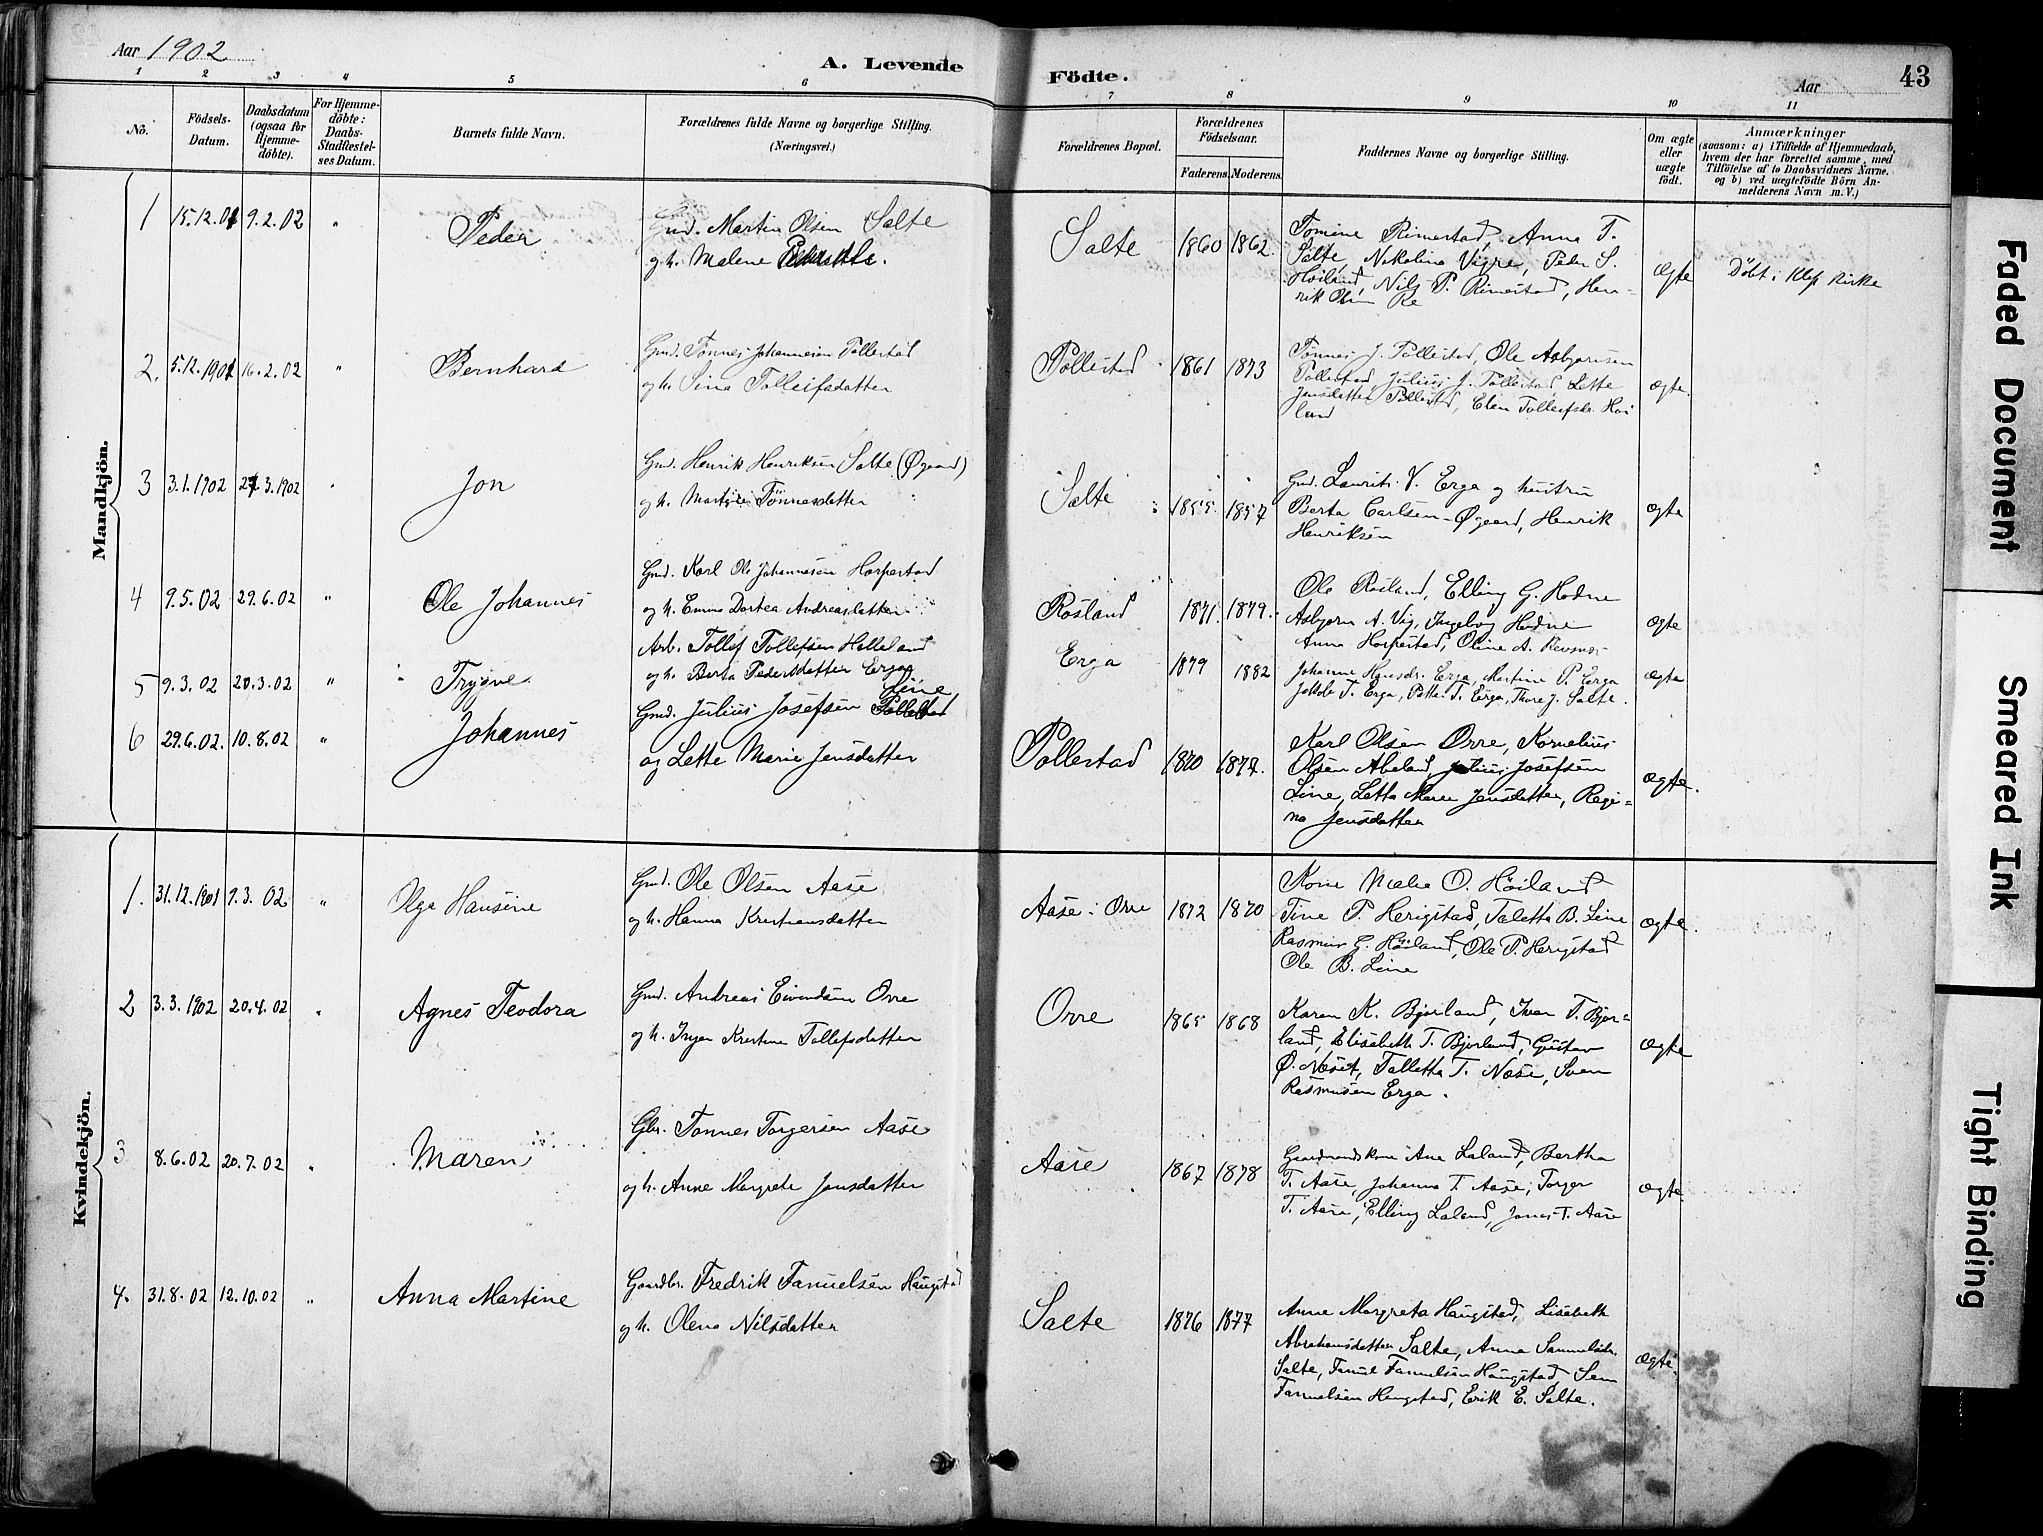 Aar 1902
A. Levende
Födte.
Aar
43
1 2 3 4 5 6 7 8 9 10 11
No.
Födsels-
Datum.
Daabsdatum
(ogsaa for
Hjemme-
döbte).
For Hjemme-
döbte:
Daabs-
Stadfæstel-
ses Datum.
Barnets fulde Navn.
Forældrenes fulde Navne og borgerlige Stilling.
(Næringsvei.)
Forældrenes Bopæl.
Forældrenes
Födselsaar.
Faderens. Moderens.
Faddernes Navne og borgerlige Stilling.
Om ægte
eller
uægte
födt.
Anmærkninger
(saasom: a) i Tilfælde af Hjemmedaab,
hvem der har forrettet samme, med
Tilföielse af to Daabsvidners Navne.
og b) ved uægtefödte Börn An-
melderens Navn m. V.)
Mandkjön.
1 15.12.01 9.2.02 " Peder
Gmd. Martin Olsen Salte
og h. Malene
Salte 1860 1862
Tomine Rimestad, Anna T.
Salte, Nikolina Vigre, Peder S.
Höiland, Nils P. Rimestad, Hen-
rik Olsen Re
Ægte
Döbt i Klep Kirke
2. 5.12.1901 16.2.02 " Bernhard
Gmd. Tönnes Johannesen Pollestad
og h. Sina Tolleifsdatter
Pollestad 1861 1873
Tönnes J. Pollestad, Ole Asbjörnsen
Pollestad, Julius J. Pollestad, Lette
Jensdatter Pollestad, Elen Tolleifsdr. Höi
land
ægte.
3 3.1.1902 27.3.1902 " Jon
Gmd. Henrik Henriksen Salte (Øgaard)
og h. Martine Tönnesdatter
Salte 1855 1857
Gmd. Laurits V. Erga og hustru
Berta Carlsen-Øgaard, Henrik
Henriksen
ægte
4 9.5.02 29.6.02 " Ole Johannes
Gmd. Karl Ole Johannesen Horpestad
og h. Emma Dortea Andreasdatter
Rosland 1871. 1879.
Ole Rosland, Elling G. Hodne
Asbjörn A. Vig, Ingeborg Hodne
Anna Horpestad, Oline A.
ægte
5 9.3.02 20.3.02 " Trygve
Arb. Tollef Tollefsen Helleland
og h. Berta Pedersdatter Erga
Erga 1879 1882
Johanne Hansdr. Erga, Martine P. Erga
Jakob T. Erga, Petter T. Erga, Thore J. Salte.
ægte
6 29.6.02. 10.8.02 " Johannes
Line
Gmd. Julius Josefsen Pollestad
og Lette Marie Jensdatter
Pollestad 1870 1877.
Karl Olsen Orre, Kornelius
Olsen Abeland, Julius Josefsen
Line, Letta Maria Jensdatter, Regi=
na Jensdatter
ægte.
Kvindekjön.
1. 31.12.1901 9.3.02 " Olga Hansine
Gmd. Ole Olsen Aase
og h. Hanna Kristiansdatter
Aase i Orre 1872 1870
Kone Malia O. Höiland
Tine P. Herigstad, Taletta B. Line
Rasmus G. Höiland, Ole P. Herigstad
Ole B. Line
ægte.
2 3.3.1902 20.4.02 " Agnes Teodora
Gmd. Andreas Eivindsen Orre
og h. Inger Kristine Tollefsdatter
Orre 1865 1868
Karen K. Bjorland, Ivar T. Bjor=
land, Elisabeth T. Bjorland, Gustav
Ø. Næset, Talletta T. Næse, Sven
Rasmusen Erga.
ægte
3 8.6.02 20.7.02 " Maren
Gbr. Tönnes Torgersen Aase
og h. Anne Margrete Jonsdatter
Aase 1867 1878
Gaardmandskone Ane Laland, Bertha
T. Aase, Johanna T. Aase, Torger
T. Aase, Elling Laland, Jonas T. Aase
ægte
4. 31.8.02 12.10.02 " Anna Martine
Gaardbr. Fredrik Fanuelsen Haugstad
og h. Olena Nilsdatter
Salte 1876 1877
Anne Margreta Haugstad, Lisabeth
Abrahamsdatter Salte, Anna Samuelsdr.
Salte, Fanuel Fanuelsen Haugstad, Sem
Fanuelsen Haugstad, Erik E. Salte.
ægte
Faded Document
Smeared Ink
Tight Binding